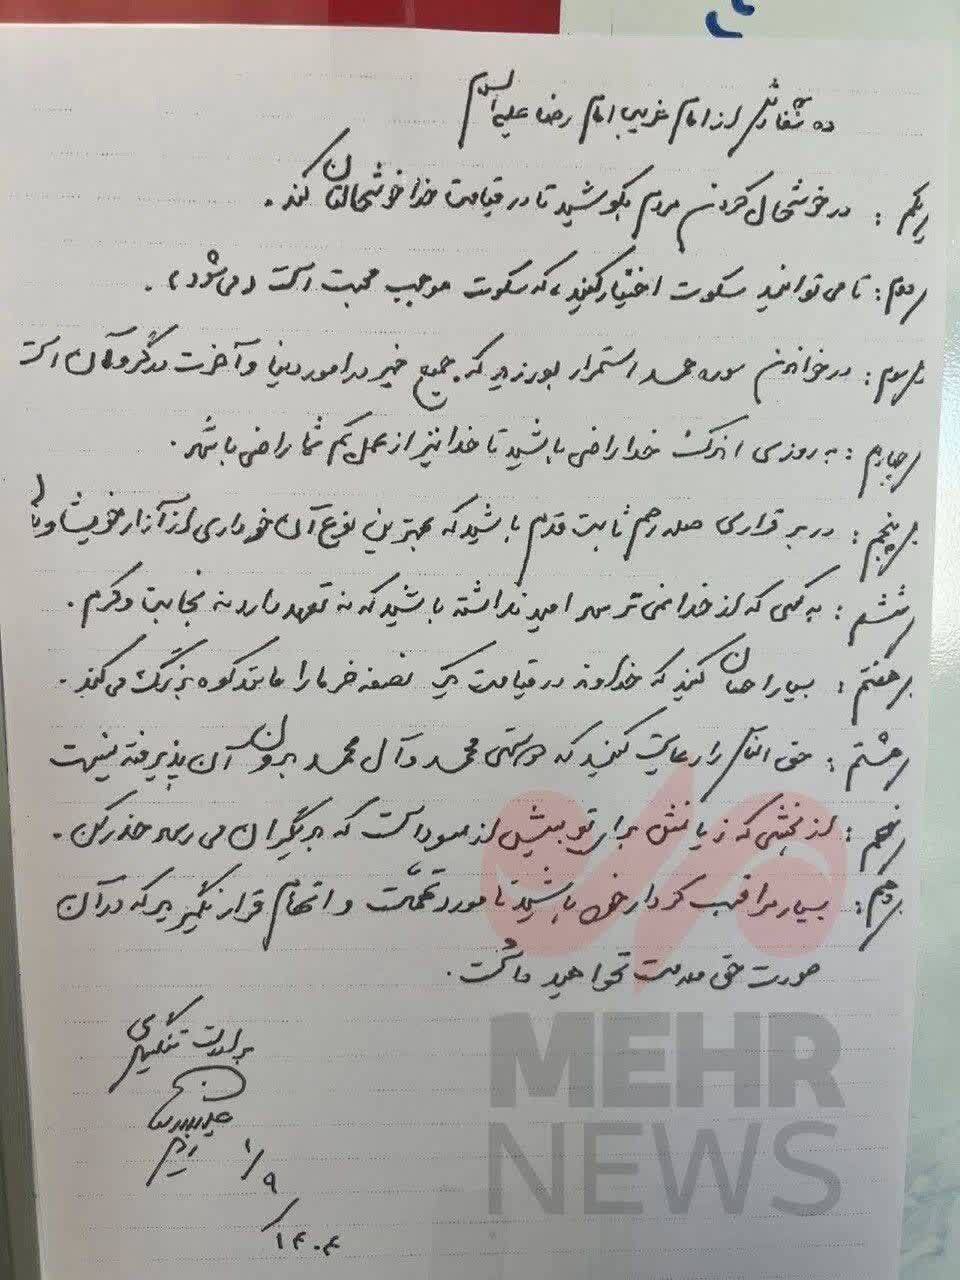 ده سفارش از امام غریب امام رضا علیه السلام
یکم: در خوشحال کردن مردم بکوشید تا در قیامت خدا خوشحالتان کند.
دوم: تا می توانید سکوت اختیار کنید، که سکوت موجب محبت است (می شود).
سوم: در خواندن سوره حمد استمرار بورزید که جمیع خیر در امور دنیا و آخرت در گرو آن است
چهارم: به روزی اندک خدا راضی باشید تا خدا نیز از عمل کم شما راضی باشد.
پنجم: در برقراری صله رحم ثابت قدم باشید که بهترین نوع آن خودداری از آزار خویشاوندان
ششم: به کسی که از خدا نمی ترسد امید نداشته باشید که نه تعهد دارد نه نجابت و کرم.
هفتم: بسیار احسان کنید که خداوند در قیامت یک نصفه خرما را مانند کوه بزرگ می کند.
هشتم: حق الناس را رعایت کنید که دوستی محمد و آل محمد بدون آن پذیرفته نیست
نهم: از بخششی که زیانش برای تو بیش از سود است که به دیگران می رسد حذر کن.
دهم: بسیار مراقب کردار خود باشید تا مورد تهمت و اتهام قرار نگیرید که در آن
صورت حق مذمت نخواهید داشت.
برادرت تنگسیری
۱/۹
۱۴۰۴
MEHR
NEWS